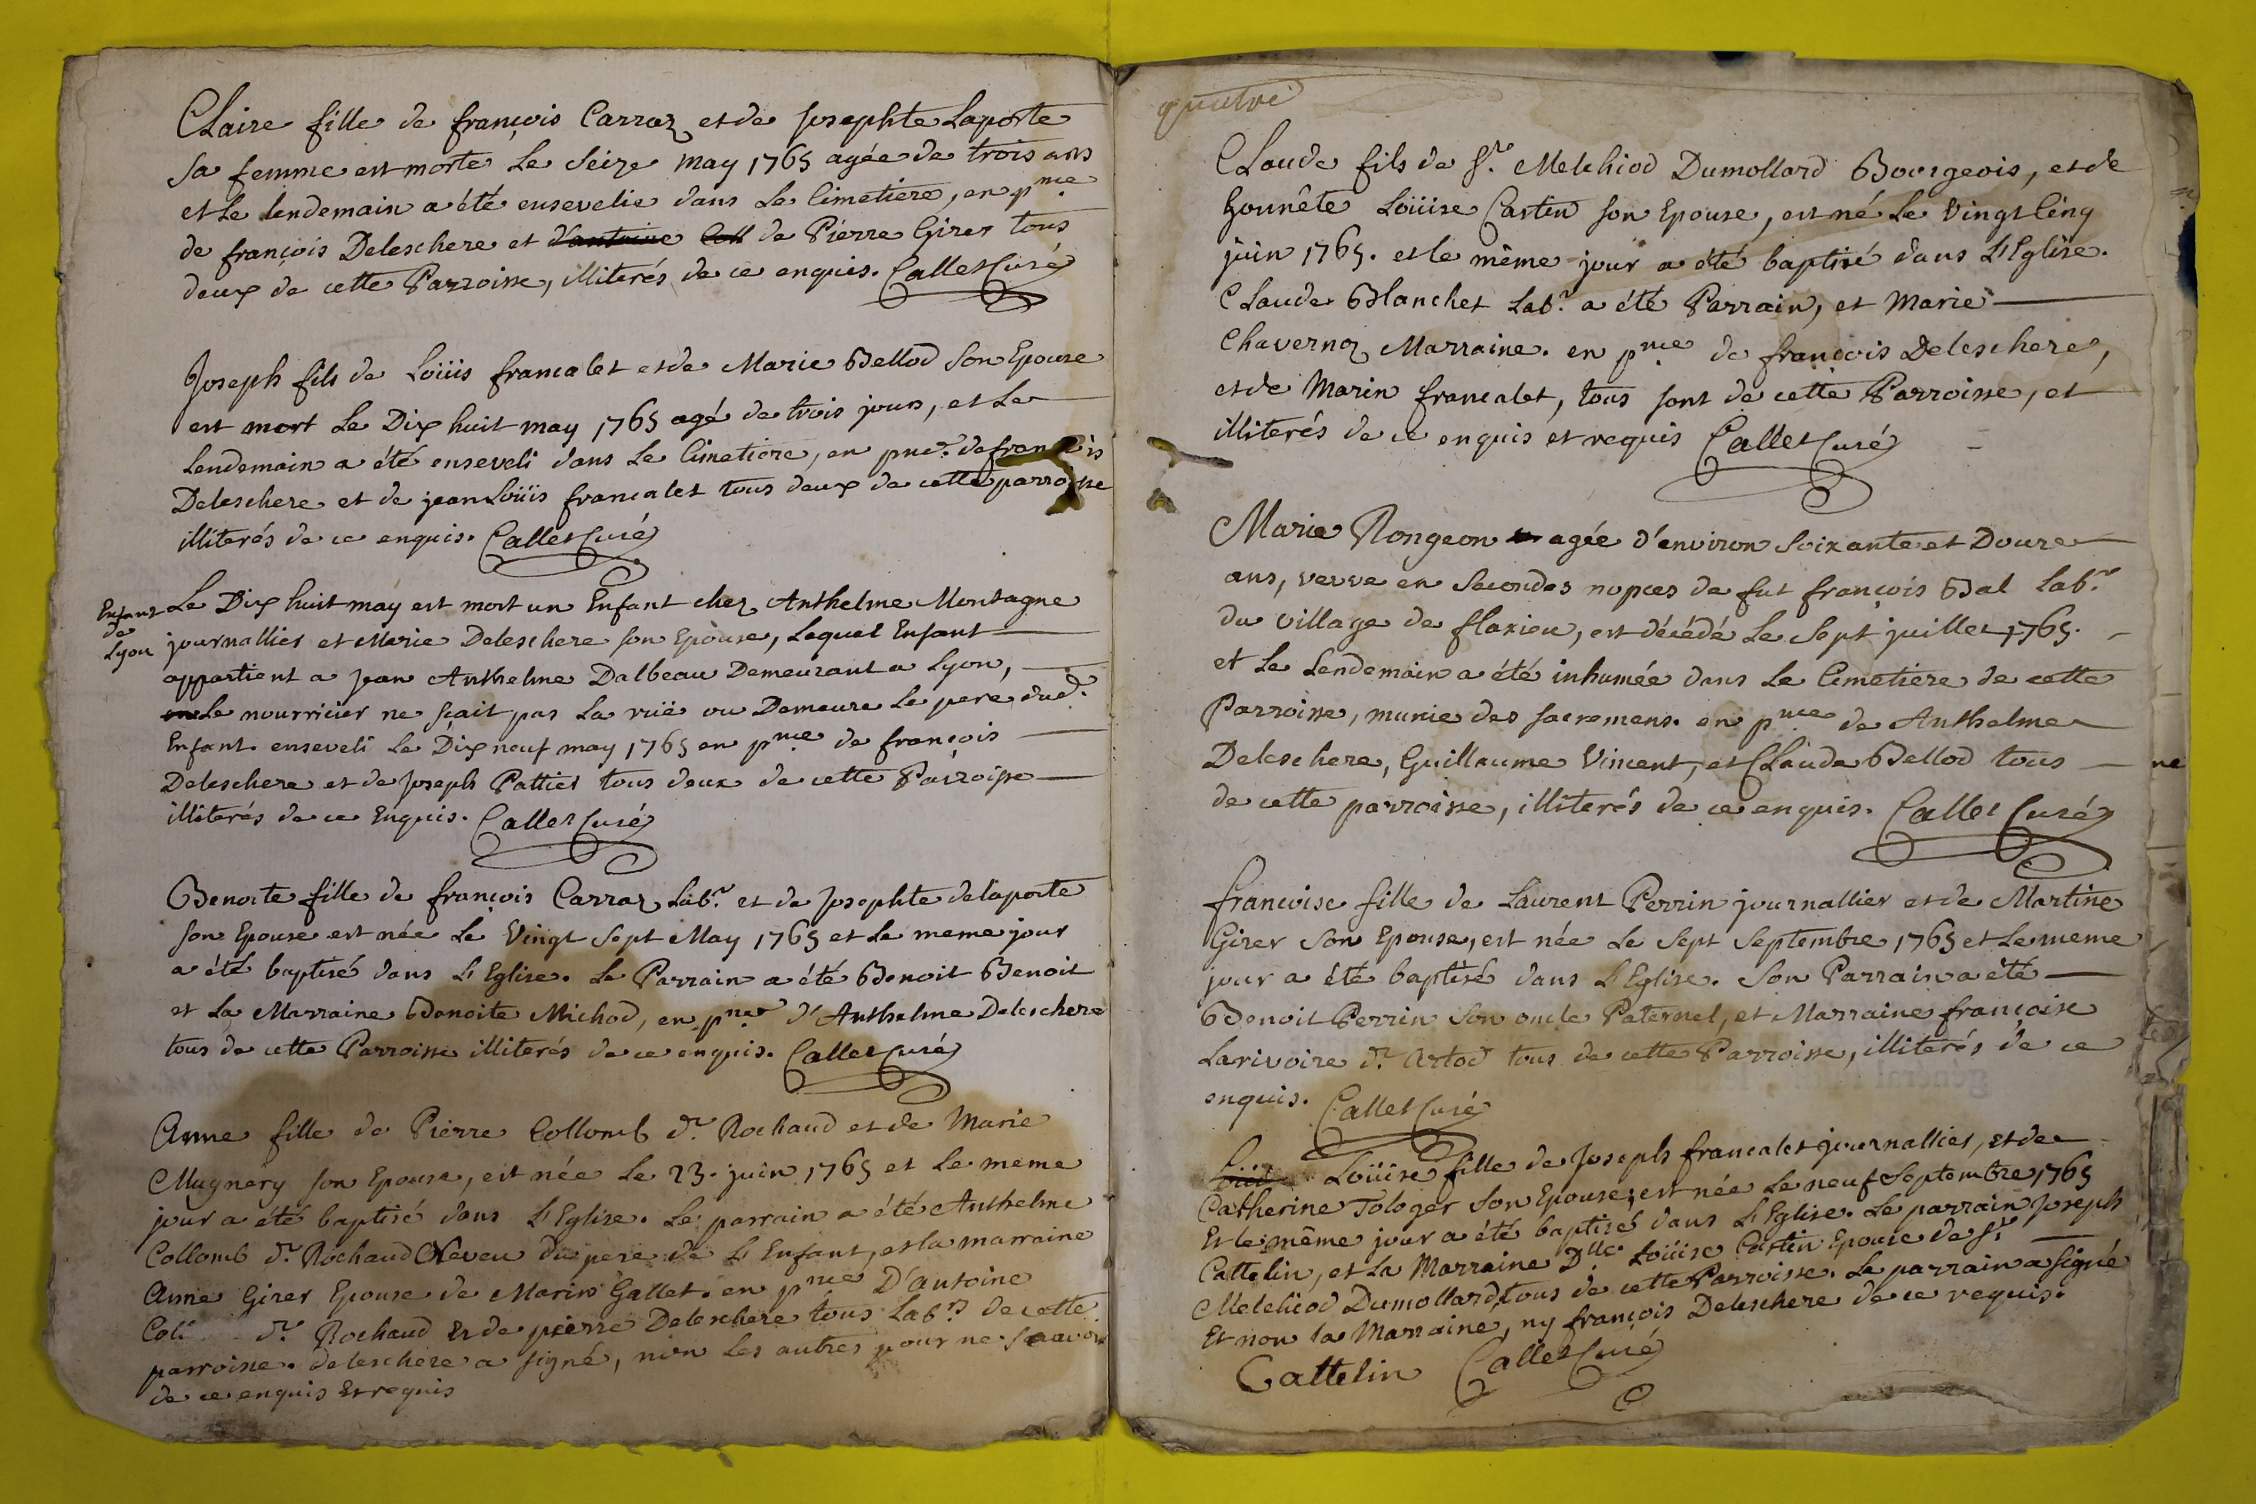 Claire fille de françois Carraz et de Josephte Laporte
sa femme est morte le seize may 1765 agée de trois ans
et le lendemain a été ensevelie dans le Cimetiere, en pnce
de françois Deleschere et d'antoine Coll de Pierre Girer tous
deux de cette Parroisse, illiterés de ce enquis. Callet Curé
Joseph fils de Loüis francalet et de Marie Bellod son Epouse
est mort le Dix huit may 1765 agé de trois jours, et le
lendemain a été enseveli dans le Cimetiere, en pnce. de françois
Deleschere et de jean Loüis francalet tous deux de cette parroisse
illiterés de ce enquis. Callet Curé
Enfant
de
Lyon
Le Dix huit may est mort un Enfant chez Anthelme Montagne
journallier et Marie Deleschere son Epouse, lequel Enfant
appartient a Jean Anthelme Dalbeau Demeurant a Lyon,
le nourricier ne sçait pas la rüe ou Demeure le pere dud.
Enfant. enseveli le Dix neuf may 1765 en pnce de françois
Deleschere et de Joseph Pattier tous deux de cette Parroisse
illiterés de ce Enquis. Callet Curé
Benoite fille de françois Carraz Labr. et de Josephte delaporte
son Epouse est née le Vingt sept May 1765 et le meme jour
a été baptisé dans L'Eglise. Le Parrain a été Benoit Benoit
et la Marraine Benoite Michod, en pnce d'Anthelme Deleschere
tous de cette Parroisse illiterés de ce enquis. Callet Curé
Anne fille de Pierre Collomb dr. Rochaud et de Marie
Mugnery son Epouse, est née le 23. juin 1765 et le meme
jour a été baptisé dans L'Eglise. Le parrain a été Anthelme
Collomb dr. Rochaud Neveu du pere de L'Enfant, et la marraine
Anne Girer Epouse de Marin Gallet. en pnce D'antoine
Coll dr. Rochaud et de pierre Deleschere tous Labrs de cette
parroisse. deleschere a signé, non les autres pour ne sçavoir
de ce enquis et requis
quatre
Claude fils de Sr. Melchiod Dumollard Bourgeois, et de
honnête Loüise Castin son Epouse, est né le Vingt Cinq
juin 1765. et le même jour a été baptisé dans L'Eglise.
Claude Blanchet Labr. a été Parrain, et Marie
Chavernoz Marraine. en pnce de françois Deleschere,
et de Marin francalet, tous sont de cette Parroisse, et
illiterés de ce enquis et requis Callet Curé
Marie Rongeon agée d'environ soixante et Douze
ans, veuve en secondes nopces de fut françois Bal labr.
du village de flaxieu, est décédé le sept juillet 1765.
et le lendemain a été inhumée dans le Cimetiere de cette
Parroisse, munie des sacremens. en pnce de Anthelme
Deleschere, Guillaume Vincent, et Claude Bellod tous
de cette parroisse, illiterés de ce enquis. Callet Curé
ne
francoise fille de Laurent Perrin journallier et de Martine
Girer son Epouse, est née le sept septembre 1765 et le meme
jour a été baptisé dans L'Eglise. Son Parrain a été
Benoit Perrin son oncle Paternel, et Marraine françoise
Larivoire dr. Artod tous de cette Parroisse, illiterés de ce
enquis. Callet Curé
Loüise fille de Joseph francalet journallier, et de
Catherine Tologer son Epouse, est née le neuf septembre 1765
Et le même jour a été baptisé dans L'Eglise. Le parrain Joseph
Cattelin, et la Marraine Dlle. Loüise Castin Epouse de Sr
Melchiod Dumollard, tous de cette Parroisse. Le parrain a signé
Et non la Marraine, ny françois Deleschere de ce requis.
Cattelin Callet Curé